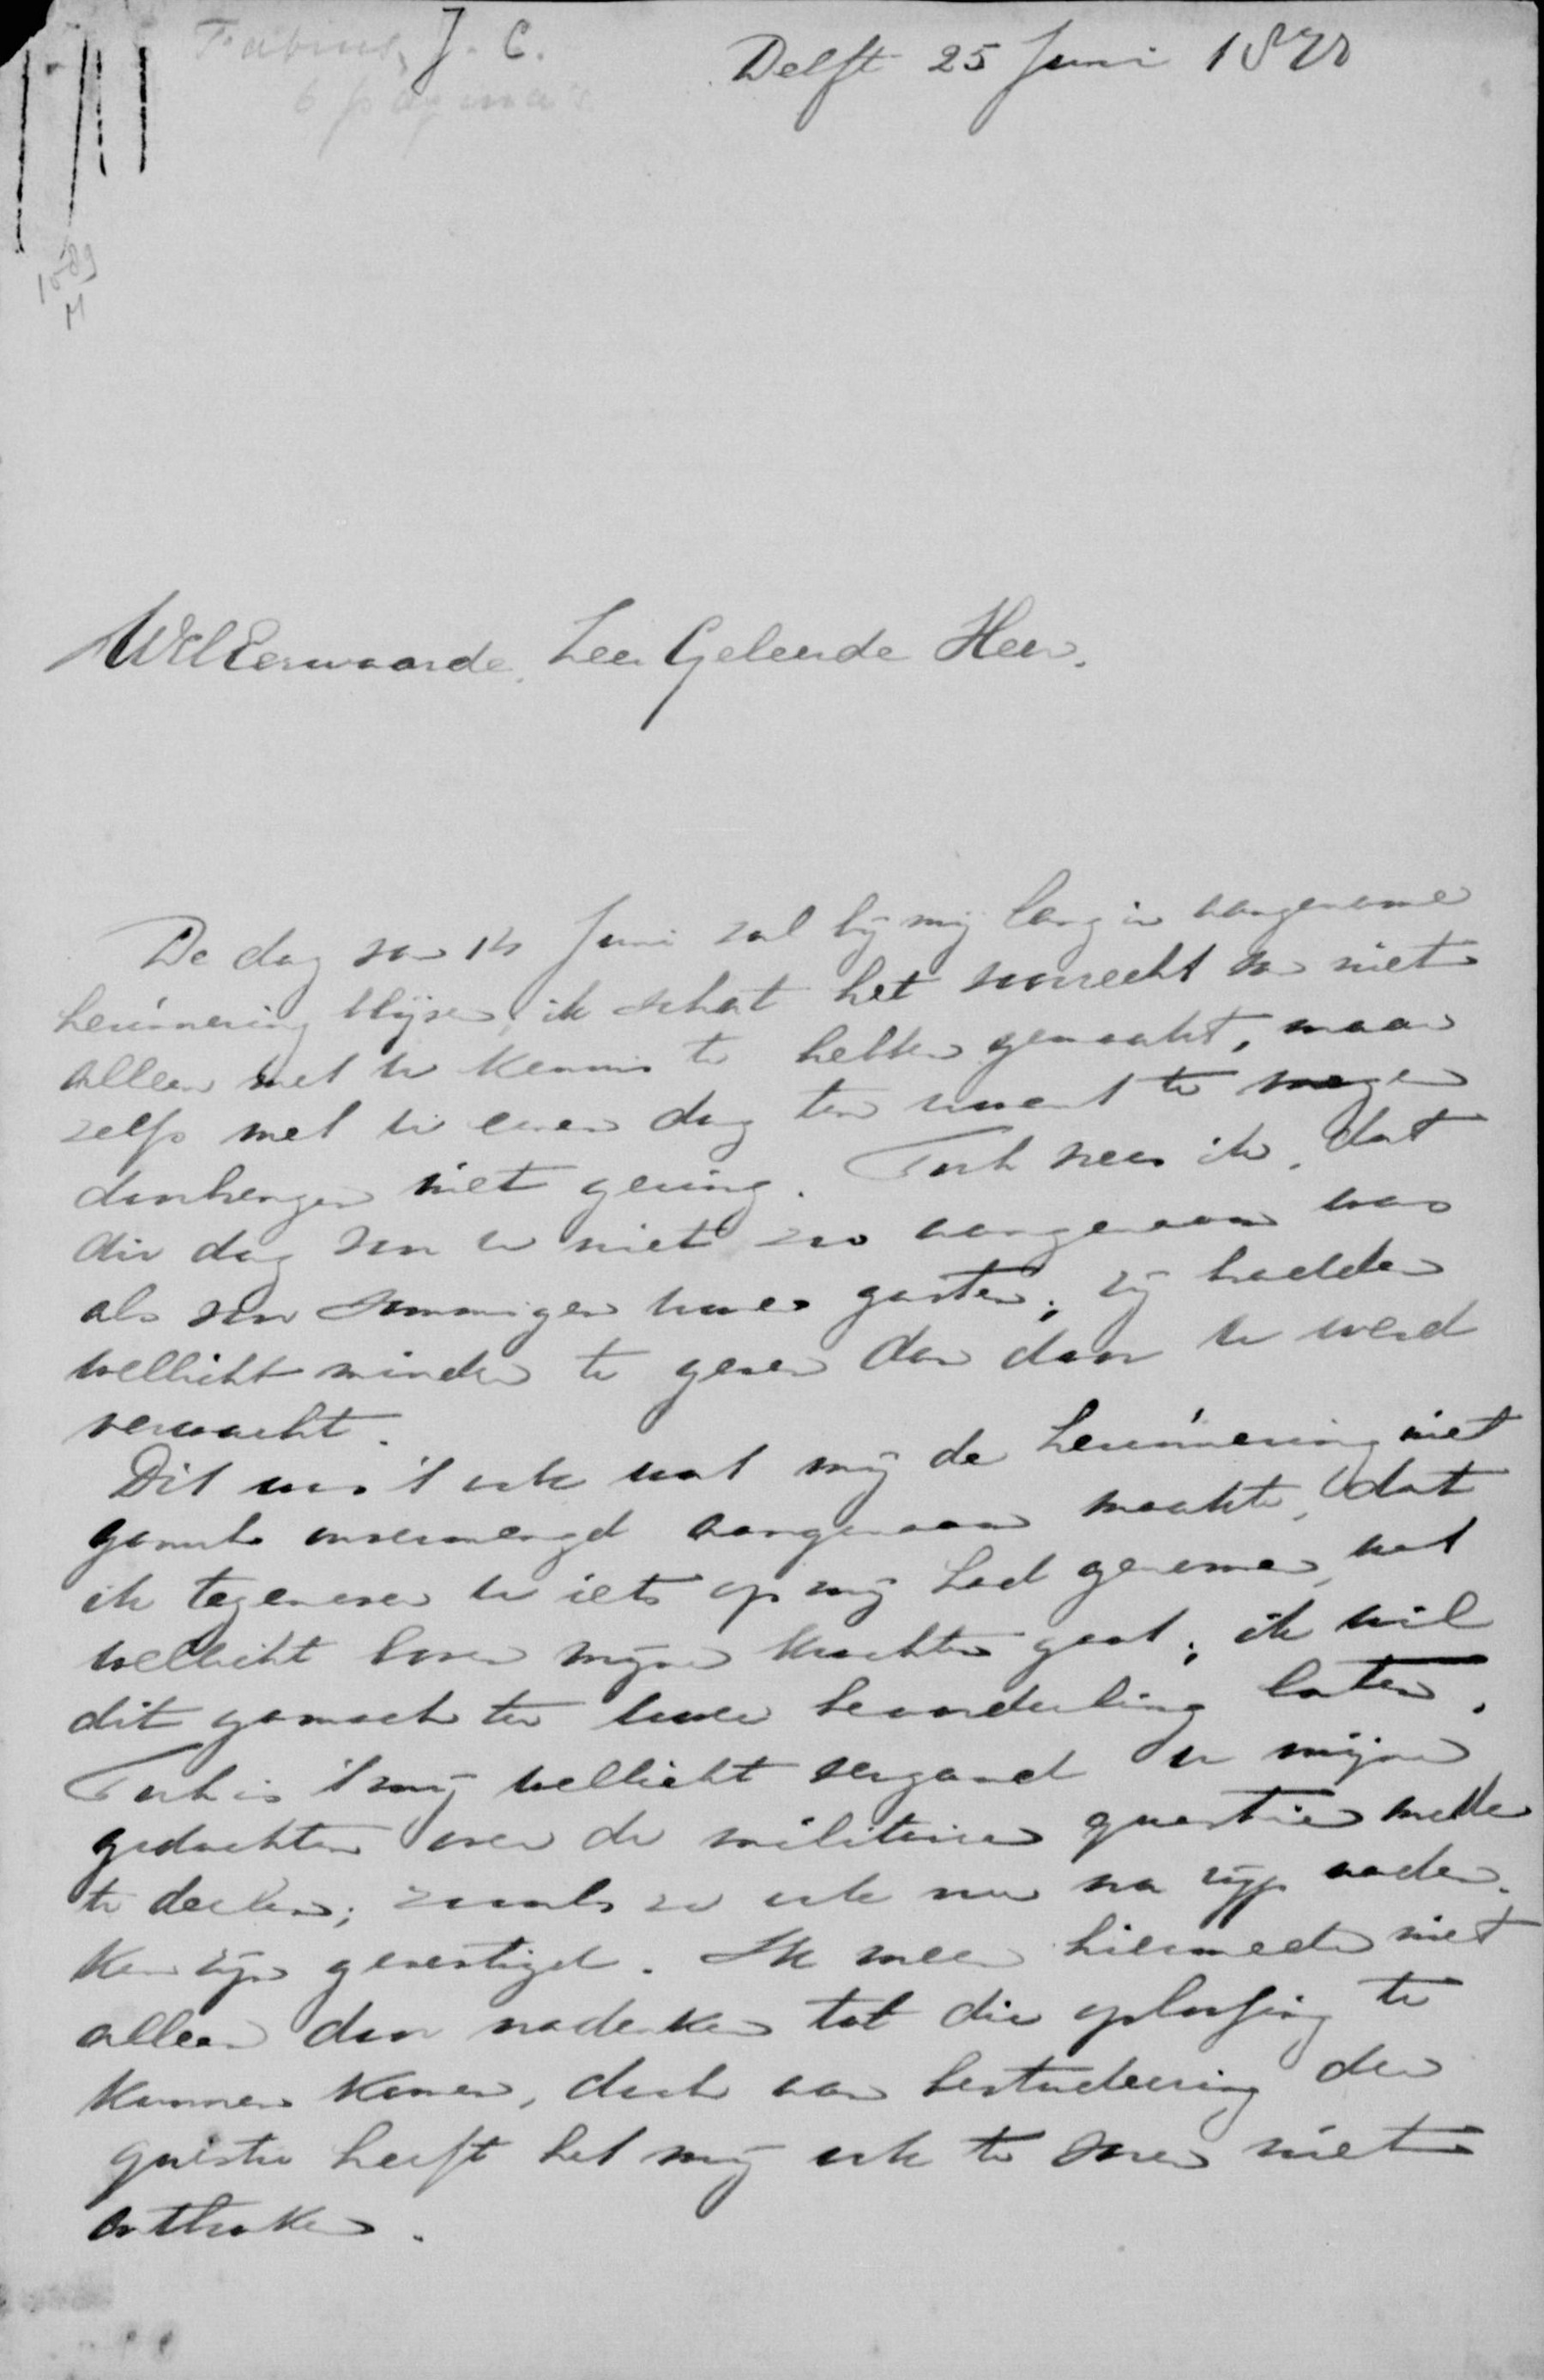 Fabius, J. C.
6 pagina's
Delft 25 Juni 1878
1589
M
WelEerwaarde, Zeer Geleerde Heer.
De dag van 14 Juni zal bij mij lang in aangename
herinnering blijven, ik schat het voorrecht van niet
alleen met U kennis te hebben gemaakt, maar
zelfs met U eenen dag ten uwent te mogen
doorbrengen niet gering. Toch vrees ik, dat
die dag voor U niet zoo aangenaam was
als voor sommigen uwer gasten; zij hadden
wellicht minder te geven dan door U werd
verwacht.
Dit was 't ook wat mij de herinnering niet
gansch onvermengd aangenaam maakte, dat
ik tegenover U iets op mij had genomen, wat
wellicht boven mijne krachten gaat; ik wil
dit gansch ter uwer beoordeeling laten.
Toch is 't mij wellicht vergund U mijne
gedachten over de militaire quaestie mede
te deelen; zooals ze ook nu na rijp naden-
ken zijn gevestigd. Ik meen hiermede niet
alleen door nadenken tot die oplossing te
kunnen komen, doch aan bestudeering der
quaestie heeft het mij ook te voren niet
ontbroken.